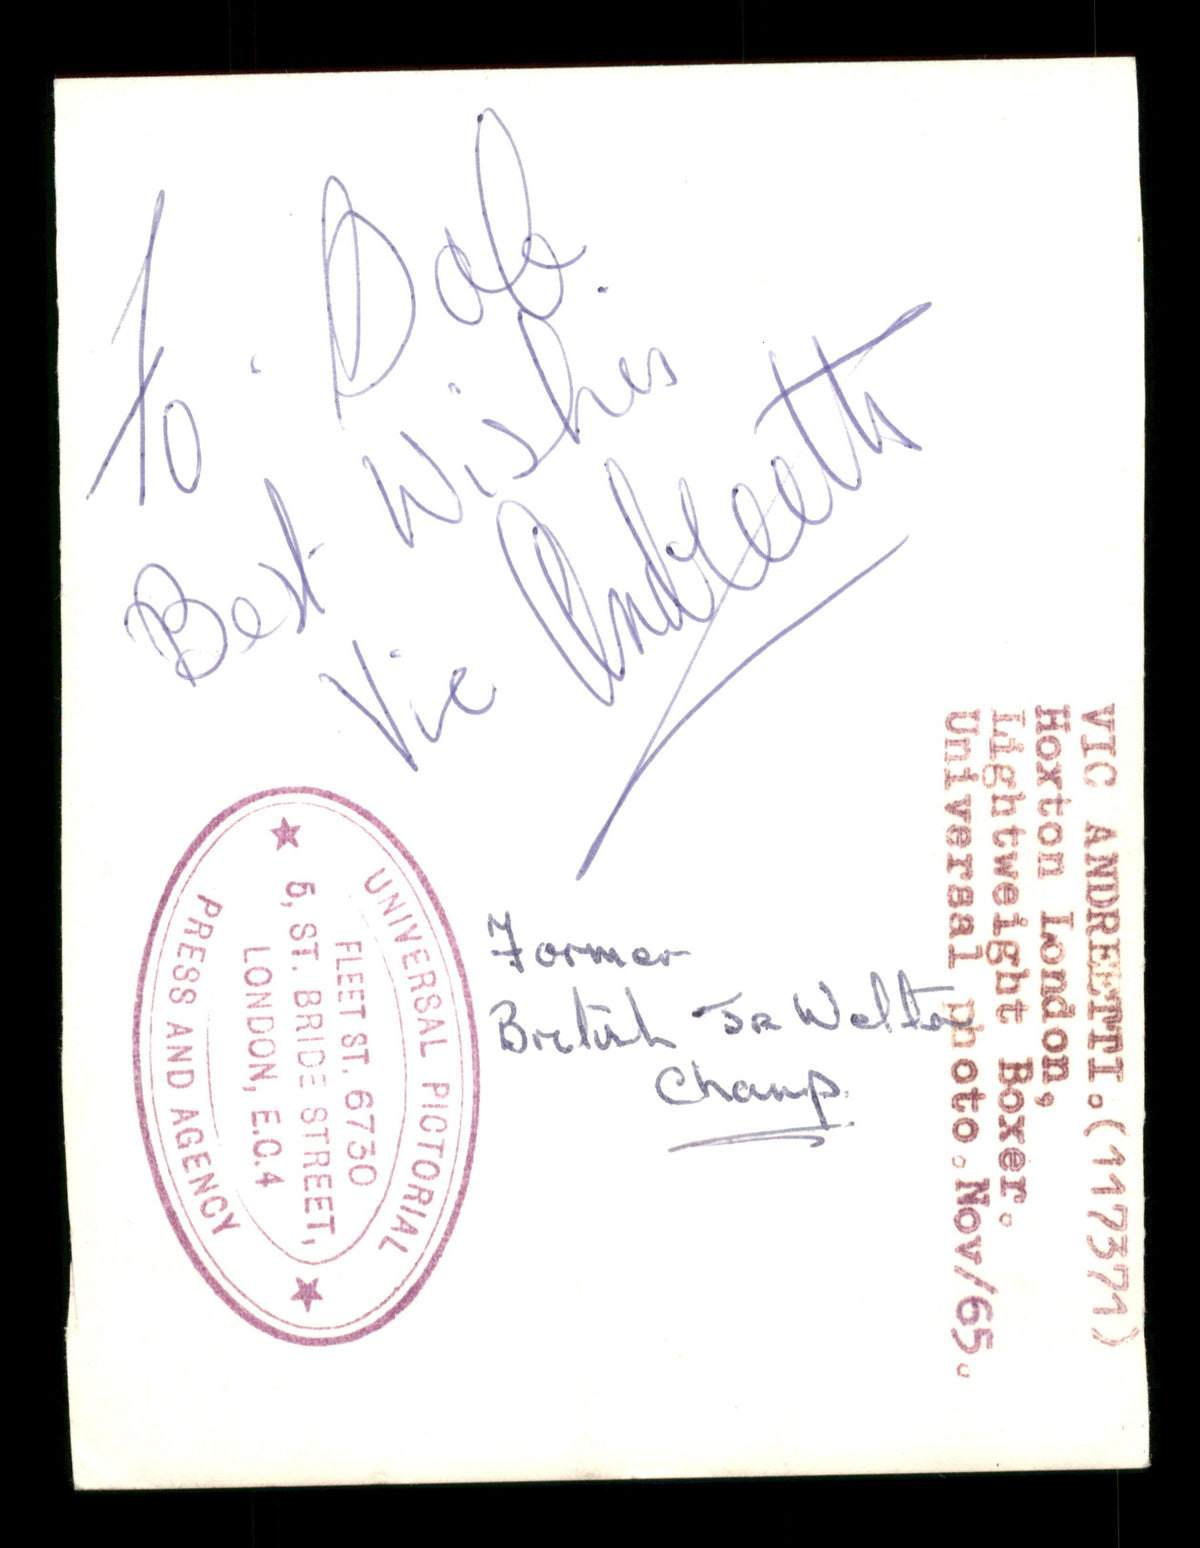 To Dale
Best Wishes
Vic Andreetti
Former
British Jr Welter
Champ.
VIC ANDREETTI.(117371)
Hoxton London,
Lightweight Boxer.
Universal photo.Nov/65.
UNIVERSAL PICTORIAL
FLEET ST. 6730
5, ST. BRIDE STREET,
LONDON, E.C.4
PRESS AND AGENCY